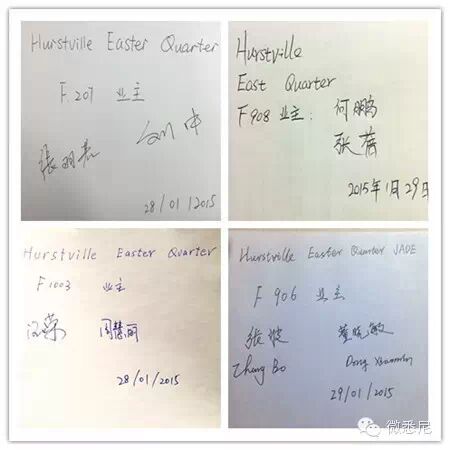 Hurstville Easter Quarter
F.207 业主
28/01/2015
Hurstville
East Quarter
F908 业主:何鹏
张蓓
2015年1月29日
Hurstville Easter Quarter
F1003 业主
周慧丽
28/01/2015
Hurstville Easter Quarter JADE
F 906 业主
张 董晓敏
Zhang Bo Dong
29/01/2015
微悉尼